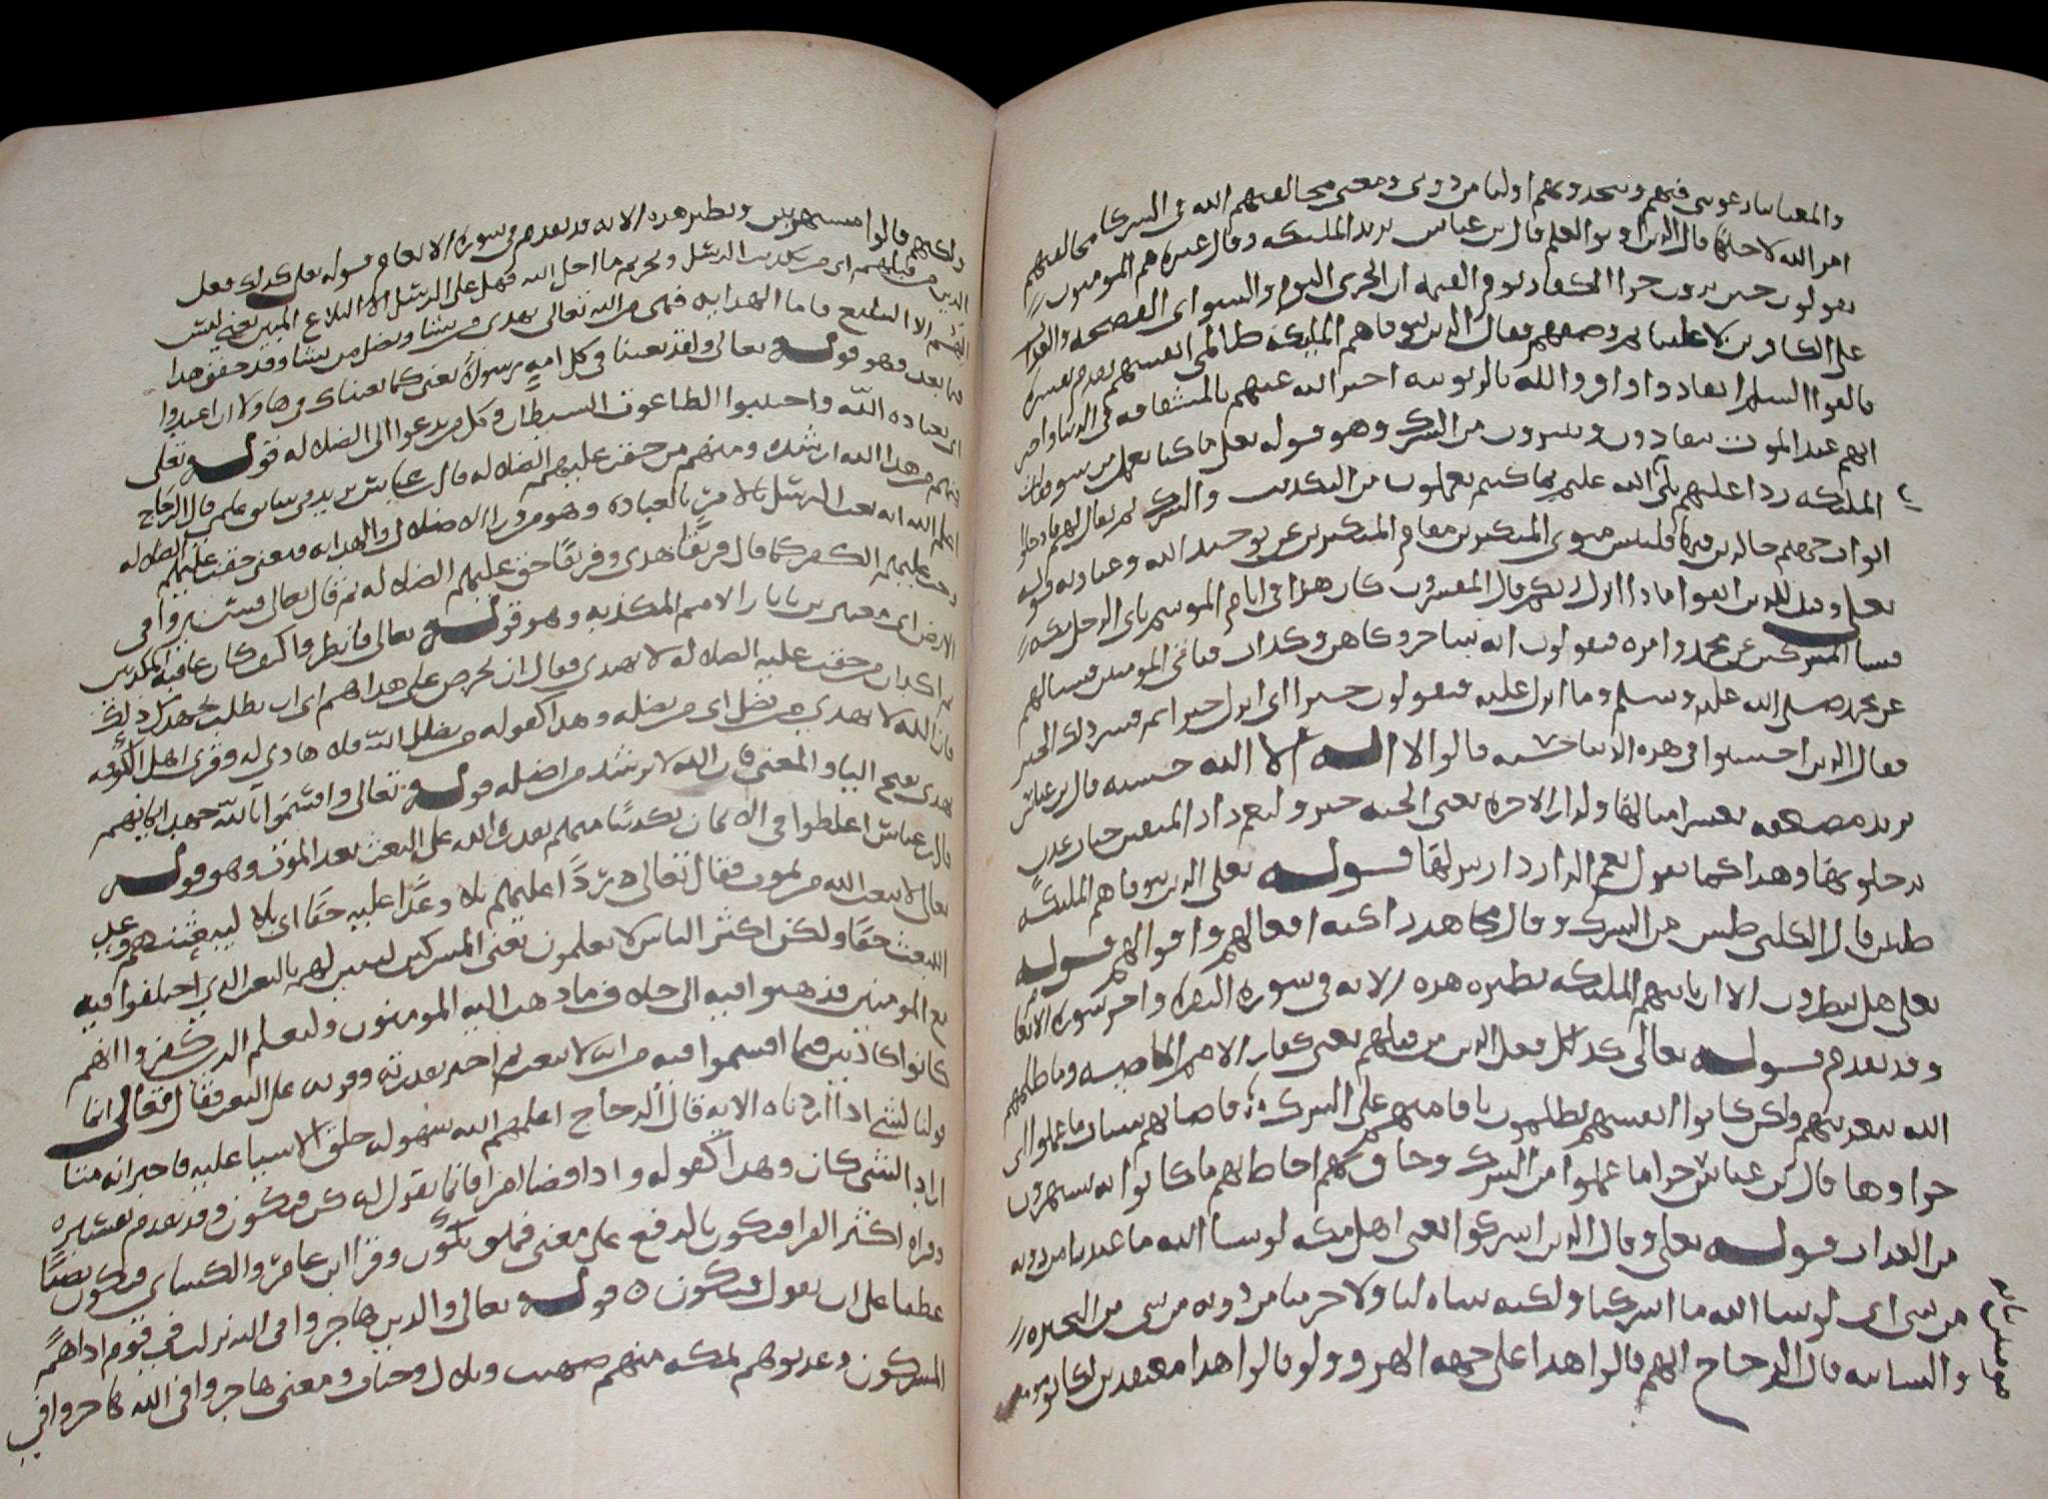 والمعنى اين شركاى الذين كنتم تشاقون فيهم وتتخذونهم اوليا من دونى ومعنى مخالفتهم الله فى الشركا مخالفتهم
امر الله لاجلها قال الذين اوتوا العلم قال بن عباس يريد الملىكه وقال غيره هم المومنون
يقولون حين يرون خزى الكفار يوم القيمه ان الخزى اليوم والسو اى الفضيحه والعذاب
على الكافرين لا علينا
فالقوا السلم انقادوا واقروا لله بالربوبيه اخبر الله عنهم
انهم عند الموت ينقادون ويتبرون من الشرك وهو قوله تعلى ما كنا نعمل من سو فقالت
الملىكه ردا عليهم بلى ان الله عليم بما كنتم تعملون من التكذيب والشرك ثم يقال لهم فادخلوا
ابواب جهنم خالدين فيها فلبئس مثوى المتكبرين مقام المتكبرين عن توحيد الله وعبادته قوله
تعلى وقيل للذين اتقوا ماذا انزل ربكم قال المفسرون كان هذا فى ايام الموسم ياتى الرجل مكه
فيسال المشركين عن محمد وامره فيقولون انه ساحر وكاهن وكذاب فياتى المومنين فيسالهم
عن محمد صلى الله عليه وسلم وما انزل عليه فيقولون خيرا اى انزل خيرا ثم فسر ذلك الخير
فقال للذين احسنوا فى هذه الدنيا حسنه قالوا لا اله الا الله حسنه قال بن عباس
يريد مضعفه بعشر امثالها ولدار الاخره يعنى الجنه خير ولنعم دار المتقين جنات عدن
يدخلونها وهذا كما تقول نعم الدار دار ينزلها قوله تعلى الذين تتوفاهم الملىكه
طيبين قال الكلبى طيبين من الشرك وقال مجاهد زاكيه افعالهم واقوالهم قوله
تعلى هل ينظرون الا ان ياتيهم الملىكه نظيره هذه الايه فى سوره البقره واخر سوره الانعام
وقد تقدم قوله تعالى كذلك فعل الذين من قبلهم يعنى كفار الامم الماضيه وما ظلمهم
الله بتعذيبهم ولكن كانوا انفسهم يظلمون باقامتهم على الشرك فاصابهم سيات ما عملوا اى
جزاوها قال بن عباس جزا ما عملوا من الشرك وحاق بهم احاط بهم ما كانوا به يستهزون
من العذاب قوله تعلى وقال الذين اشركوا يعنى اهل مكه لو شا الله ما عبدنا من دونه
من شى اى لو شا الله ما اشركنا ولكنه شاه لنا ولا حرمنا من دونه من شى من البحيره
والسايبه قال الزجاج انهم قالوا هذا على جهه الهزو ولو قالوا هذا معتقدين لكانوا مومنين
ولكنهم قالوا مستهزين ونظير هذه الايه قد تقدم فى سوره الانعام قوله تعلى كذلك فعل
الذين من قبلهم اى من تكذيب الرسل وتحريم ما احل الله فهل على الرسل الا البلاغ المبين يعنى ليس
عليهم الا التبليغ فاما الهدايه فهى من الله تعالى يهدى من يشا ويضل من يشا وقد حقق هذا
فيما بعد وهو قوله تعالى ولقد بعثنا فى كل امه رسولا يعنى كما بعثناك فى هاولا ان اعبدوا
اى بعباده الله واجتنبوا الطاغوت الشيطان وكل من يدعوا الى الضلاله قوله تعلى
فمنهم من هدا الله ارشده ومنهم من حقت عليهم الضلاله قال بن عباس يريد فى سابق علمى قال الزجاج
اعلم الله انه بعث الرسل بالامر بالعباده وهو من ورا الاضلال والهدايه ومعنى حقت عليهم الضلاله
وجب عليهم الكفر كما قال فريقا هدى وفريقا حق عليهم الضلاله ثم قال تعالى فسيروا فى
الارض اى معتبرين باثار الامم المكذبه وهو قوله تعالى فانظروا كيف كان عاقبه المكذبين
ثم اكد ان من حقت عليه الضلاله لا يهدى فقال ان تحرص على هداهم اى ان تطلب بجهدك ذلك
فان الله لا يهدى من يضل اى من يضله وهذا كقوله من يضلل الله فلا هادى له وقرى اهل الكوفه
يهدى بفتح اليا والمعنى فان الله لا يرشد من اضله قوله تعالى واقسموا بالله جهد ايمانهم
قال بن عباس اغلظوا فى الايمان تكذيبا منهم بقدره الله على البعث بعد الموت وهو قوله
تعالى لا يبعث الله من يموت فقال تعالى ردا عليهم بلا وعدا عليه حقا اى بلا ليبعثنهم وعد
البعث حقا ولكن اكثر الناس لا يعلمون يعنى المشركين ليبين لهم بالبعث الذى اختلفوا فيه
مع المومنين فذهبوا فيه الى خلاف ما ذهب اليه المومنون وليعلم الذين كفروا انهم
كانوا كاذبين فيما اقسموا فيه من انه لا يبعث ثم اخبر بقدرته وقوته على البعث فقال تعالى انما
قولنا لشى اذا اردناه الايه قال الزجاج اعلمهم الله سهوله خلق الاشيا عليه فاخبر انه متى
اراد الشى كان وهذا كقوله واذا قضا امرا فانما يقول له كن فيكون وقد تقدم تفسيره
وقراه اكثر القرا فيكون بالرفع على معنى فهو يكون وقرا ابن عامر والكساى فيكون نصبا
عطفا على ان نقول فيكون قوله تعالى والذين هاجروا فى الله نزلت فى قوم اذاهم
المشركون وعذبوهم بمكه منهم صهيب وبلال وخباب ومعنى هاجروا فى الله هاجروا فى